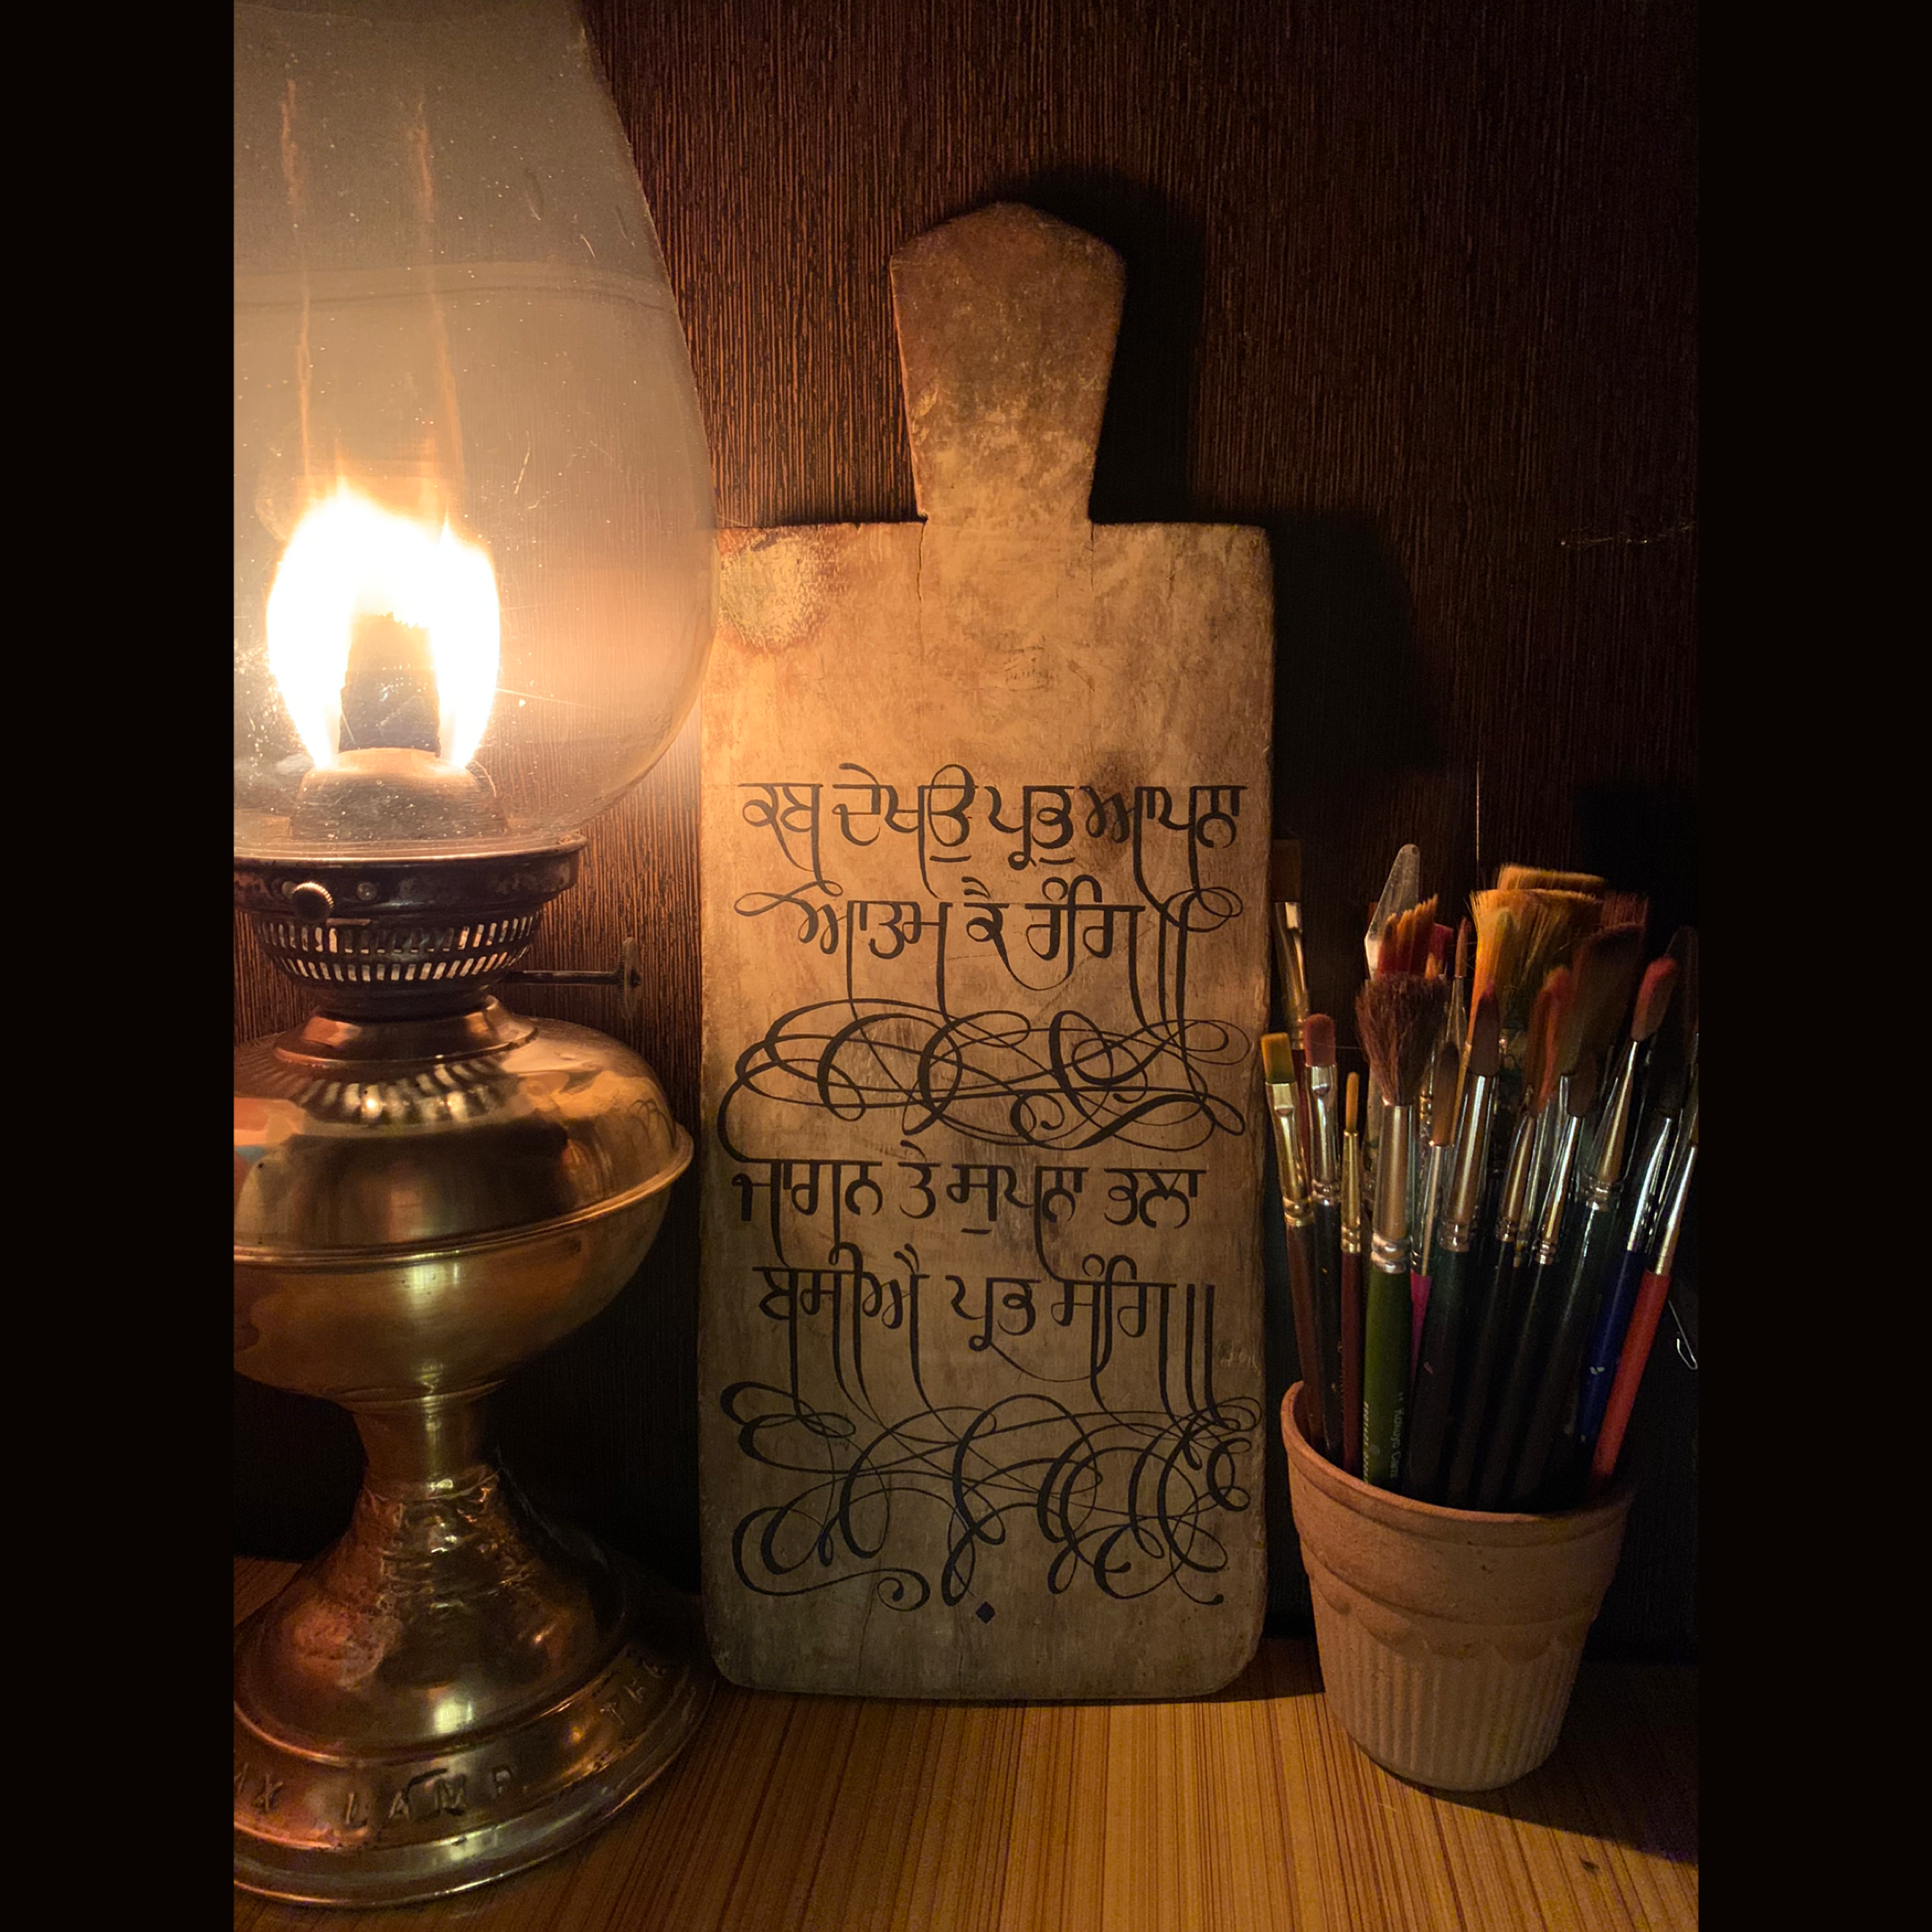 ਕਬ ਦੇਖਉ ਪ੍ਰਭੁ ਆਪਨਾ
ਆਤਮ ਕੈ ਰੰਗਿ॥
ਜਾਗਨ ਤੇ ਸੁਪਨਾ ਭਲਾ
ਬਸੀਐ ਪ੍ਰਭ ਸੰਗਿ॥
LAMP